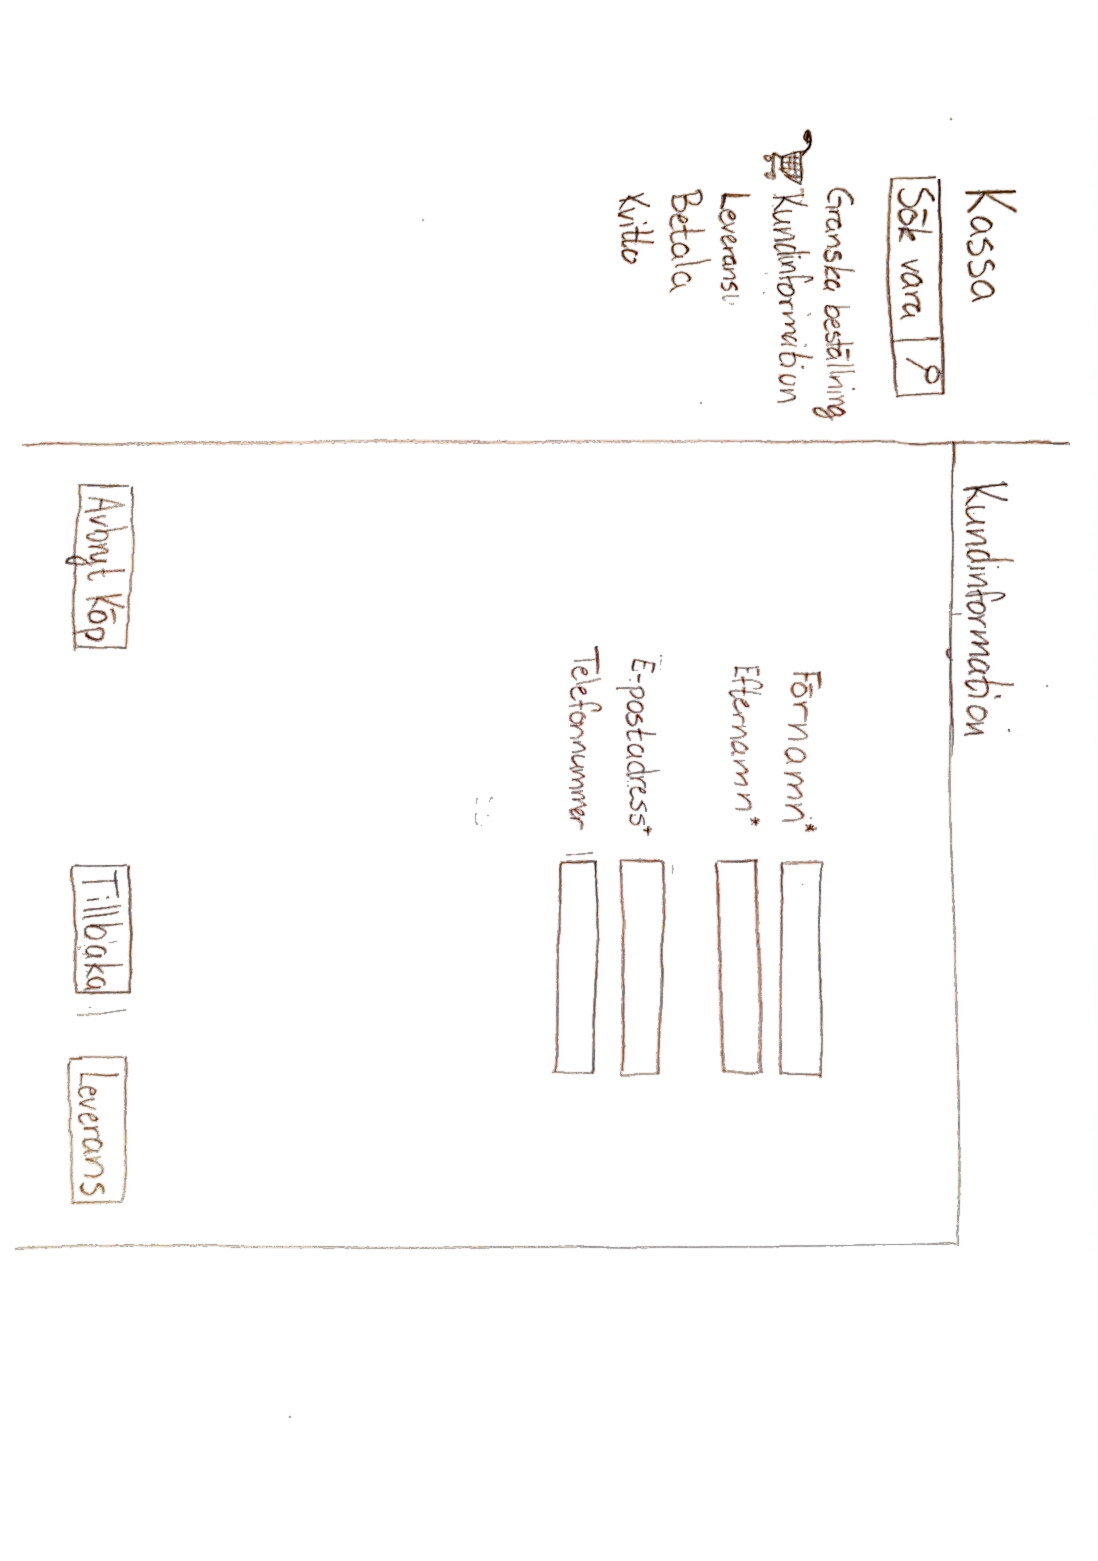 Kassa
Sök vara
Granska beställning
Kundinformation
Leverans
Betala
Kvitto
Kundinformation
Förnamn*
Efternamn*
E-postadress*
Telefonnummer
Avbryt Köp
Tillbaka
Leverans